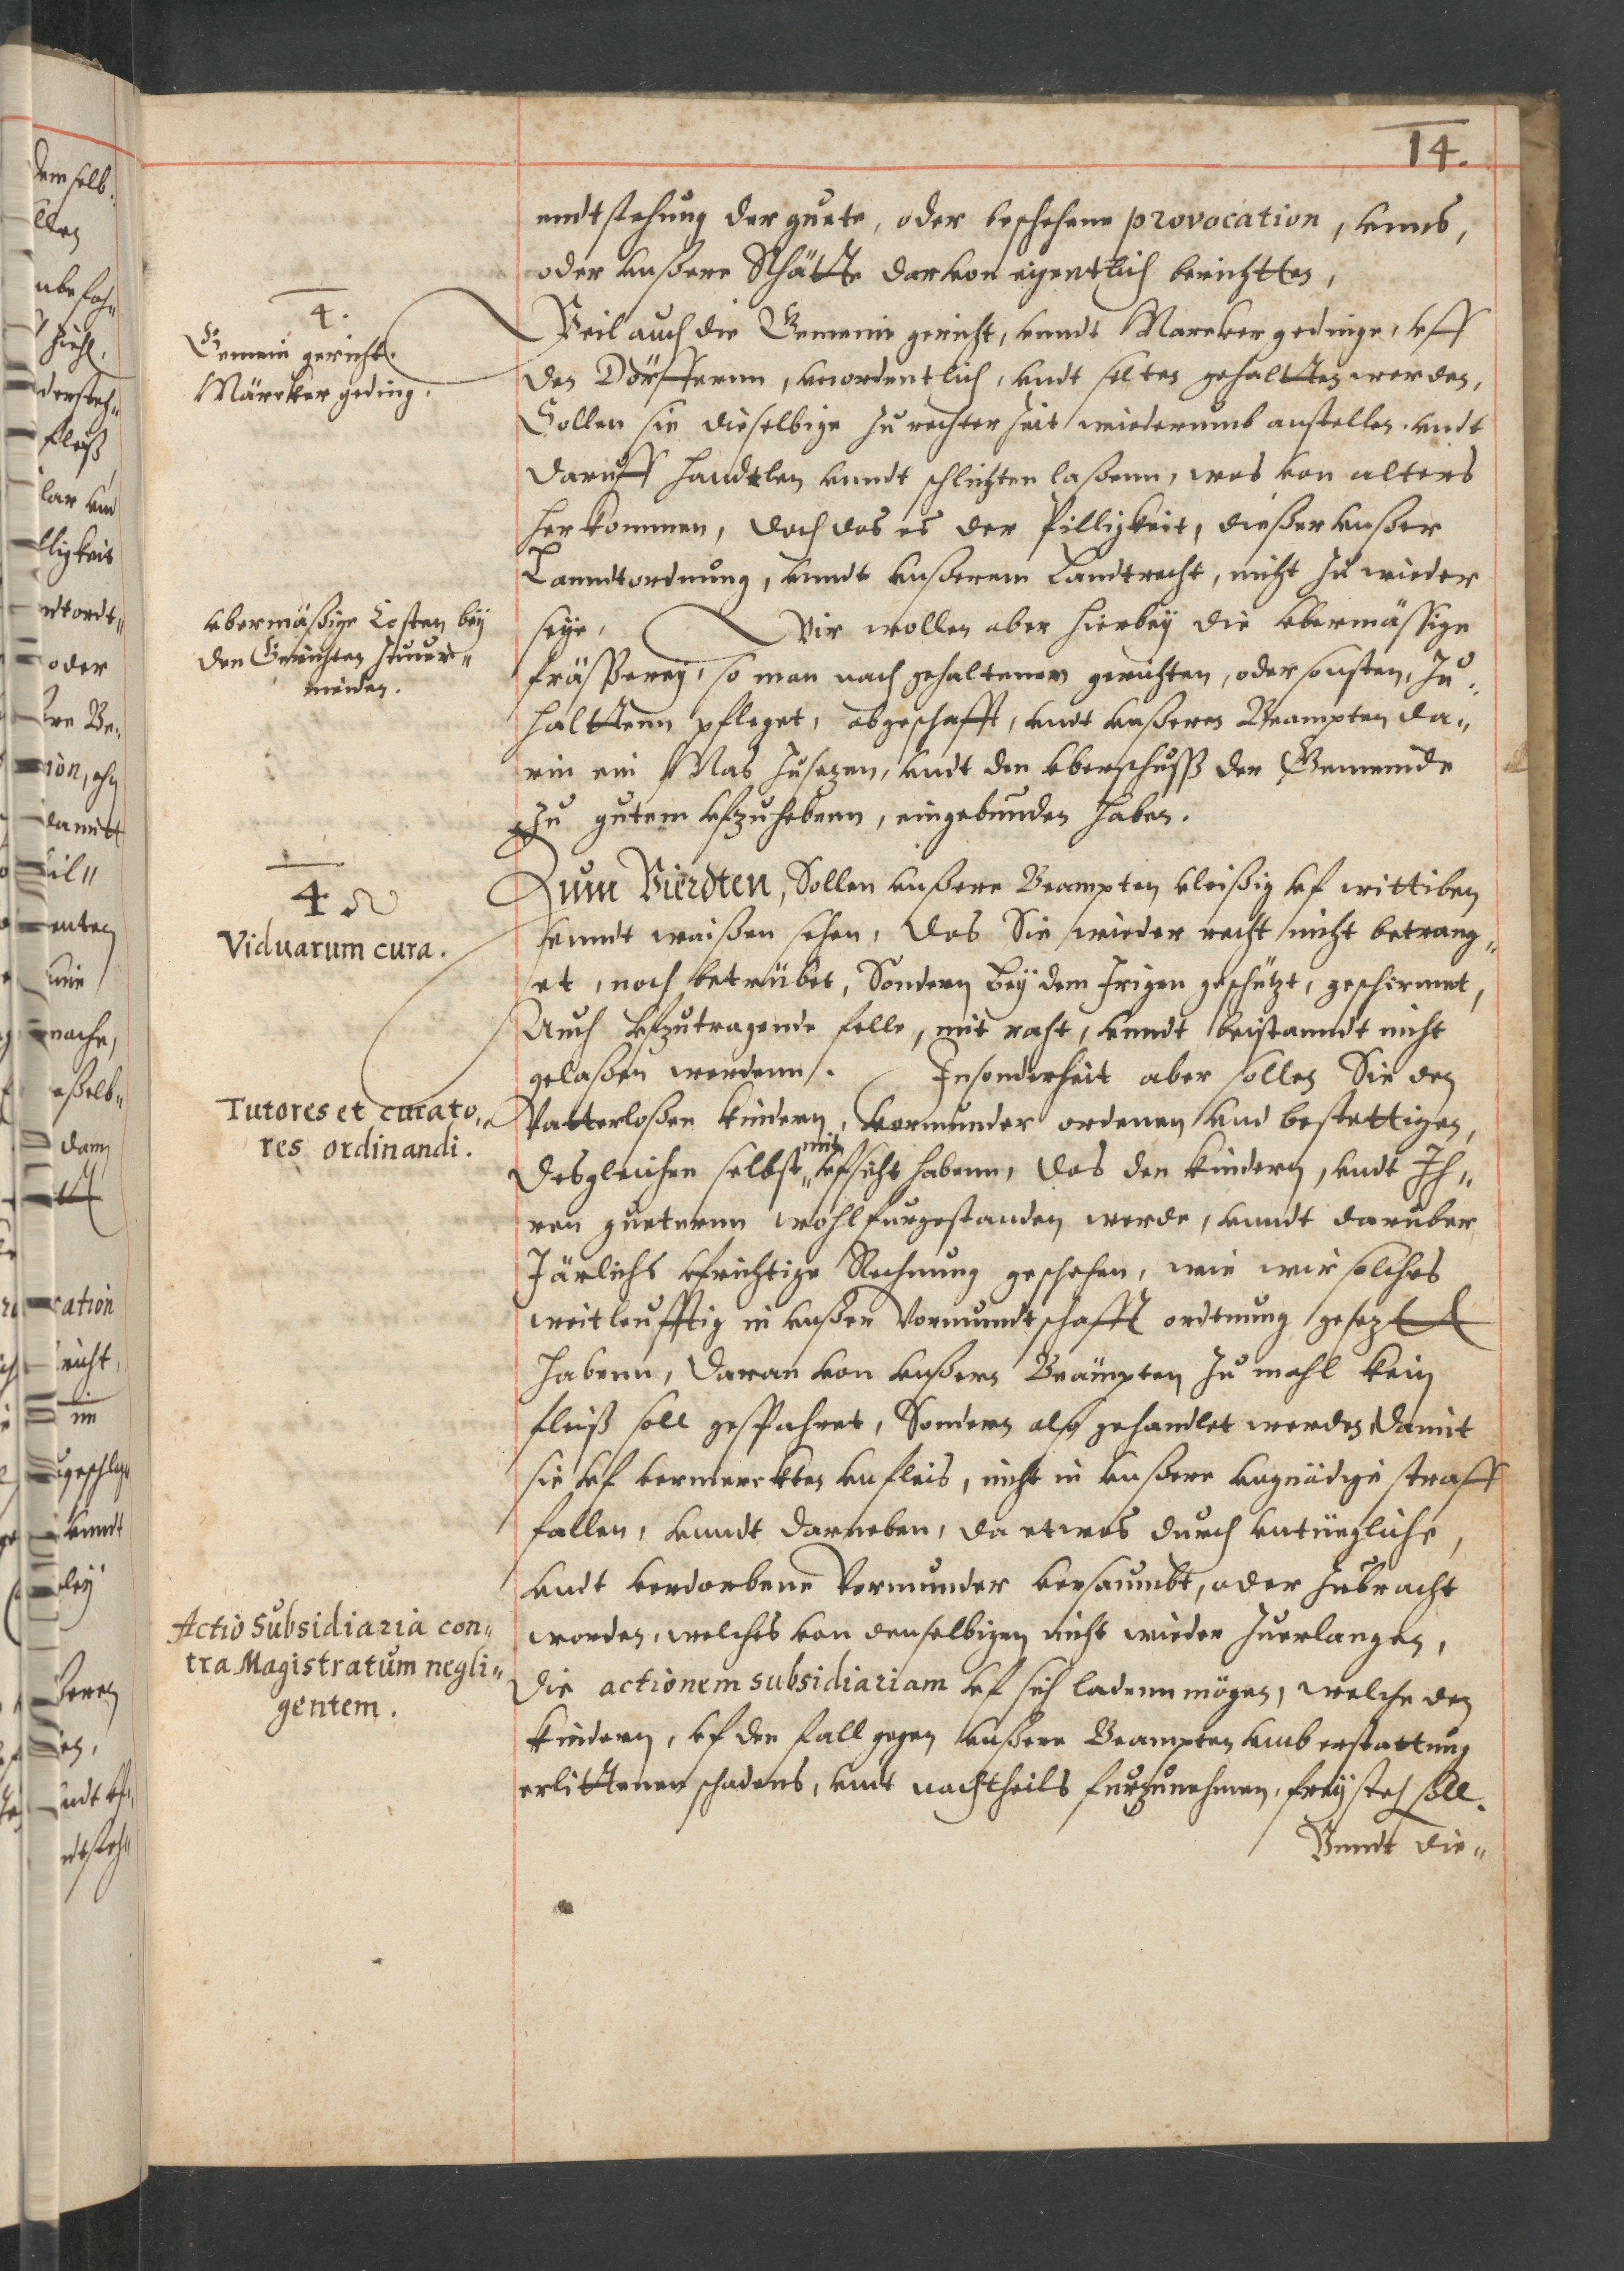 14.
endtstehung der guete, oder beschehene provocation, vnns,
oder vnßere Räthe darvon eigentlich berichtten,
4.
Gemein gericht.
Märcker geding.
Weil auch die Gemeine gericht, vnndt Marcker gedinge, vff
den Dörffernn, vnordentlich, vndt selten gehaltten werden,
Sollen sie dieselbige zu rechter zeit wiederumb anstellen vndt
daruff handtlen vnndt schlichten laßenn, was von alters
herkommen, doch das es der Pilligkeit, dießer vnßer
Lanndtordnung, vnndt vnßerem Landtrecht, nicht zu wieder
vbermäßige Costen bey
den Gerichten zuuer„
meiden.
seye, Wir wollen aber hierbey die vbermässige
fräßerey, so man nach gehaltenen gerichten, oder sonsten, zu„
halttenn pfleget, abgeschafft, vndt vnßeren Beampten da„
rin ein Mas zusezen, vndt den vberschuß der Gemeinde
zu gutem vfzuhebenn, eingebunden haben.
4
Viduarum cura.
Zum Vierdten, Sollen vnßere Beampten vleißig vf wittiben
vnndt waißen sehen, das Sie wieder recht nicht betrang„
et, noch betrübet, Sondern bey dem Irigen geschützt, geschirmet,
Auch vfzutragende felle, mit raht, vnndt beistanndt nicht
gelaßen werdenn. Insonderheit aber sollen Sie den
Tutores et curato„
res ordinandi.
Vatterloßen kindern, vormunder ordenen vnd bestettigen,
desgleichen selbst mit vfsicht habenn, das den kindern, vndt Ih„
ren gueternn wohlfurgestanden werde, vnndt daruber
Järlichs vfrichtige Rechnung geschehen, wie wir solches
weitleufftig in vnßer Vormundtschafft ordtnung gesezt
habenn, daran von vnßern Beampten zu mahl kein
fleiß soll gespahret, Sondern also gehandlet werden damit
sie vf vermerckten vnfleis, nicht in vnßere vngnädige straff
fallen, vnndt darneben, da etwas durch vntüegliche,
vndt verdorbene Vormunder versaumbt, oder zubracht
worden, welches von denselbigen nicht wieder zuerlangen,
Actio Subsidiaria con„
tra Magistratum negli„
gentem.
die actionem subsidiariam vf sich ladenn mögen, welche den
kindern, vf den fall gegen vnßere Beampten vmb erstattung
erlittenen schadens, vndt nachtheils furzunehmen, frey steh soll.
Vnndt die„